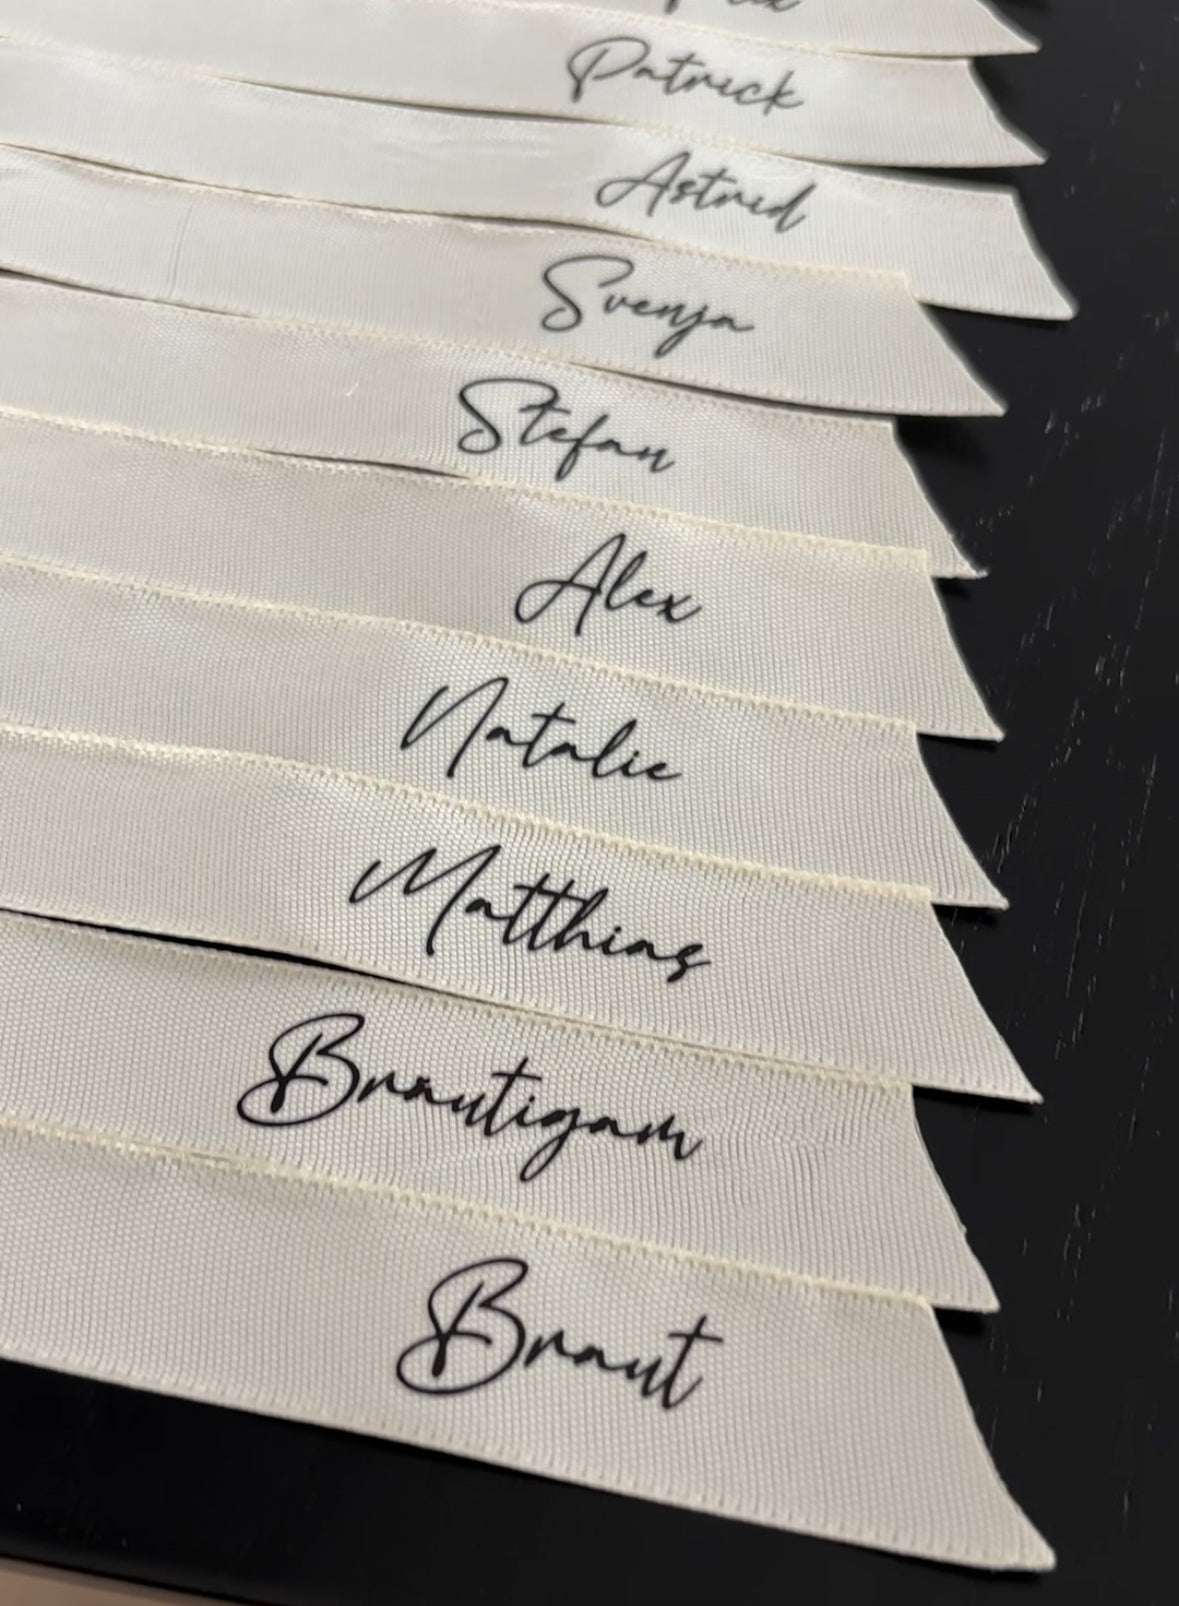 Patrick
Astrid
Svenja
Stefan
Alex
Natalie
Matthias
Brautigam
Braut